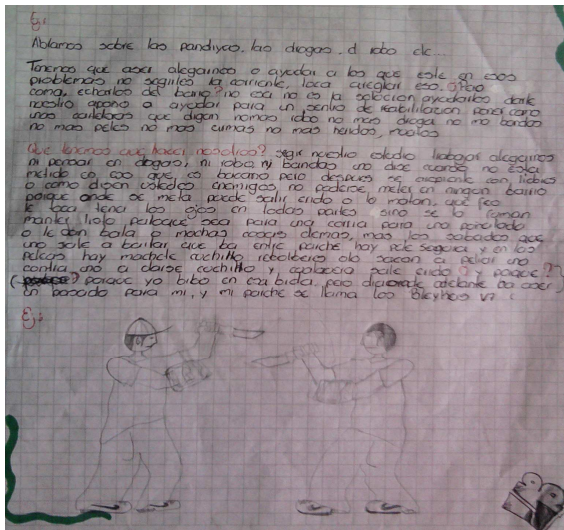 Ej:
Ablamos sobre las pandiyas, las drogas, el robo etc...
Tenemos que aser alegarnos o ayudar a los que este en esos
problemas no seguiles la corriente, toca arreglar eso. o Pero
como, echarlos del barrio? no esa no es la solocion ayudarlos darle
nuestro apollo o ayudar para un sentro de reabilitazion poner como
unos carteleras que digan nomas robo no mas droga no ma bandas
no mas peleas no mas turmas no mas heridos, muertos
Que tenemos que hacer nosotros? segir nuestro estudio trabajar alegarnos
ni pensar en drogas, ni roba ny bandas uno dise cuando no esta
metido en eso que es bacano pero despues se arrepiente con liebres
o como disen ustedes enemigos, no poderse meter en ningun barrio
porque onde se meta puede salir erido o lo matan, que feo
le toca tener los ojos en todas partes sino se lo
manley trola pelioque sea para una carria para una puñalada
o le den bala o machas cosas demas, mas los sabados que
uno sale a bailar que ba entre parche hay pele segura y en las
peleas hay machete cuchillo rebolbero olo sacan a peliar uno
contra uno a darse cuchillo y sale erido o y porque?
porque yo bibo en esa bida, pero diciorale adelante ba aser
un pasado para mi, y mi parche se llama los Bleyhers V7
Ej: